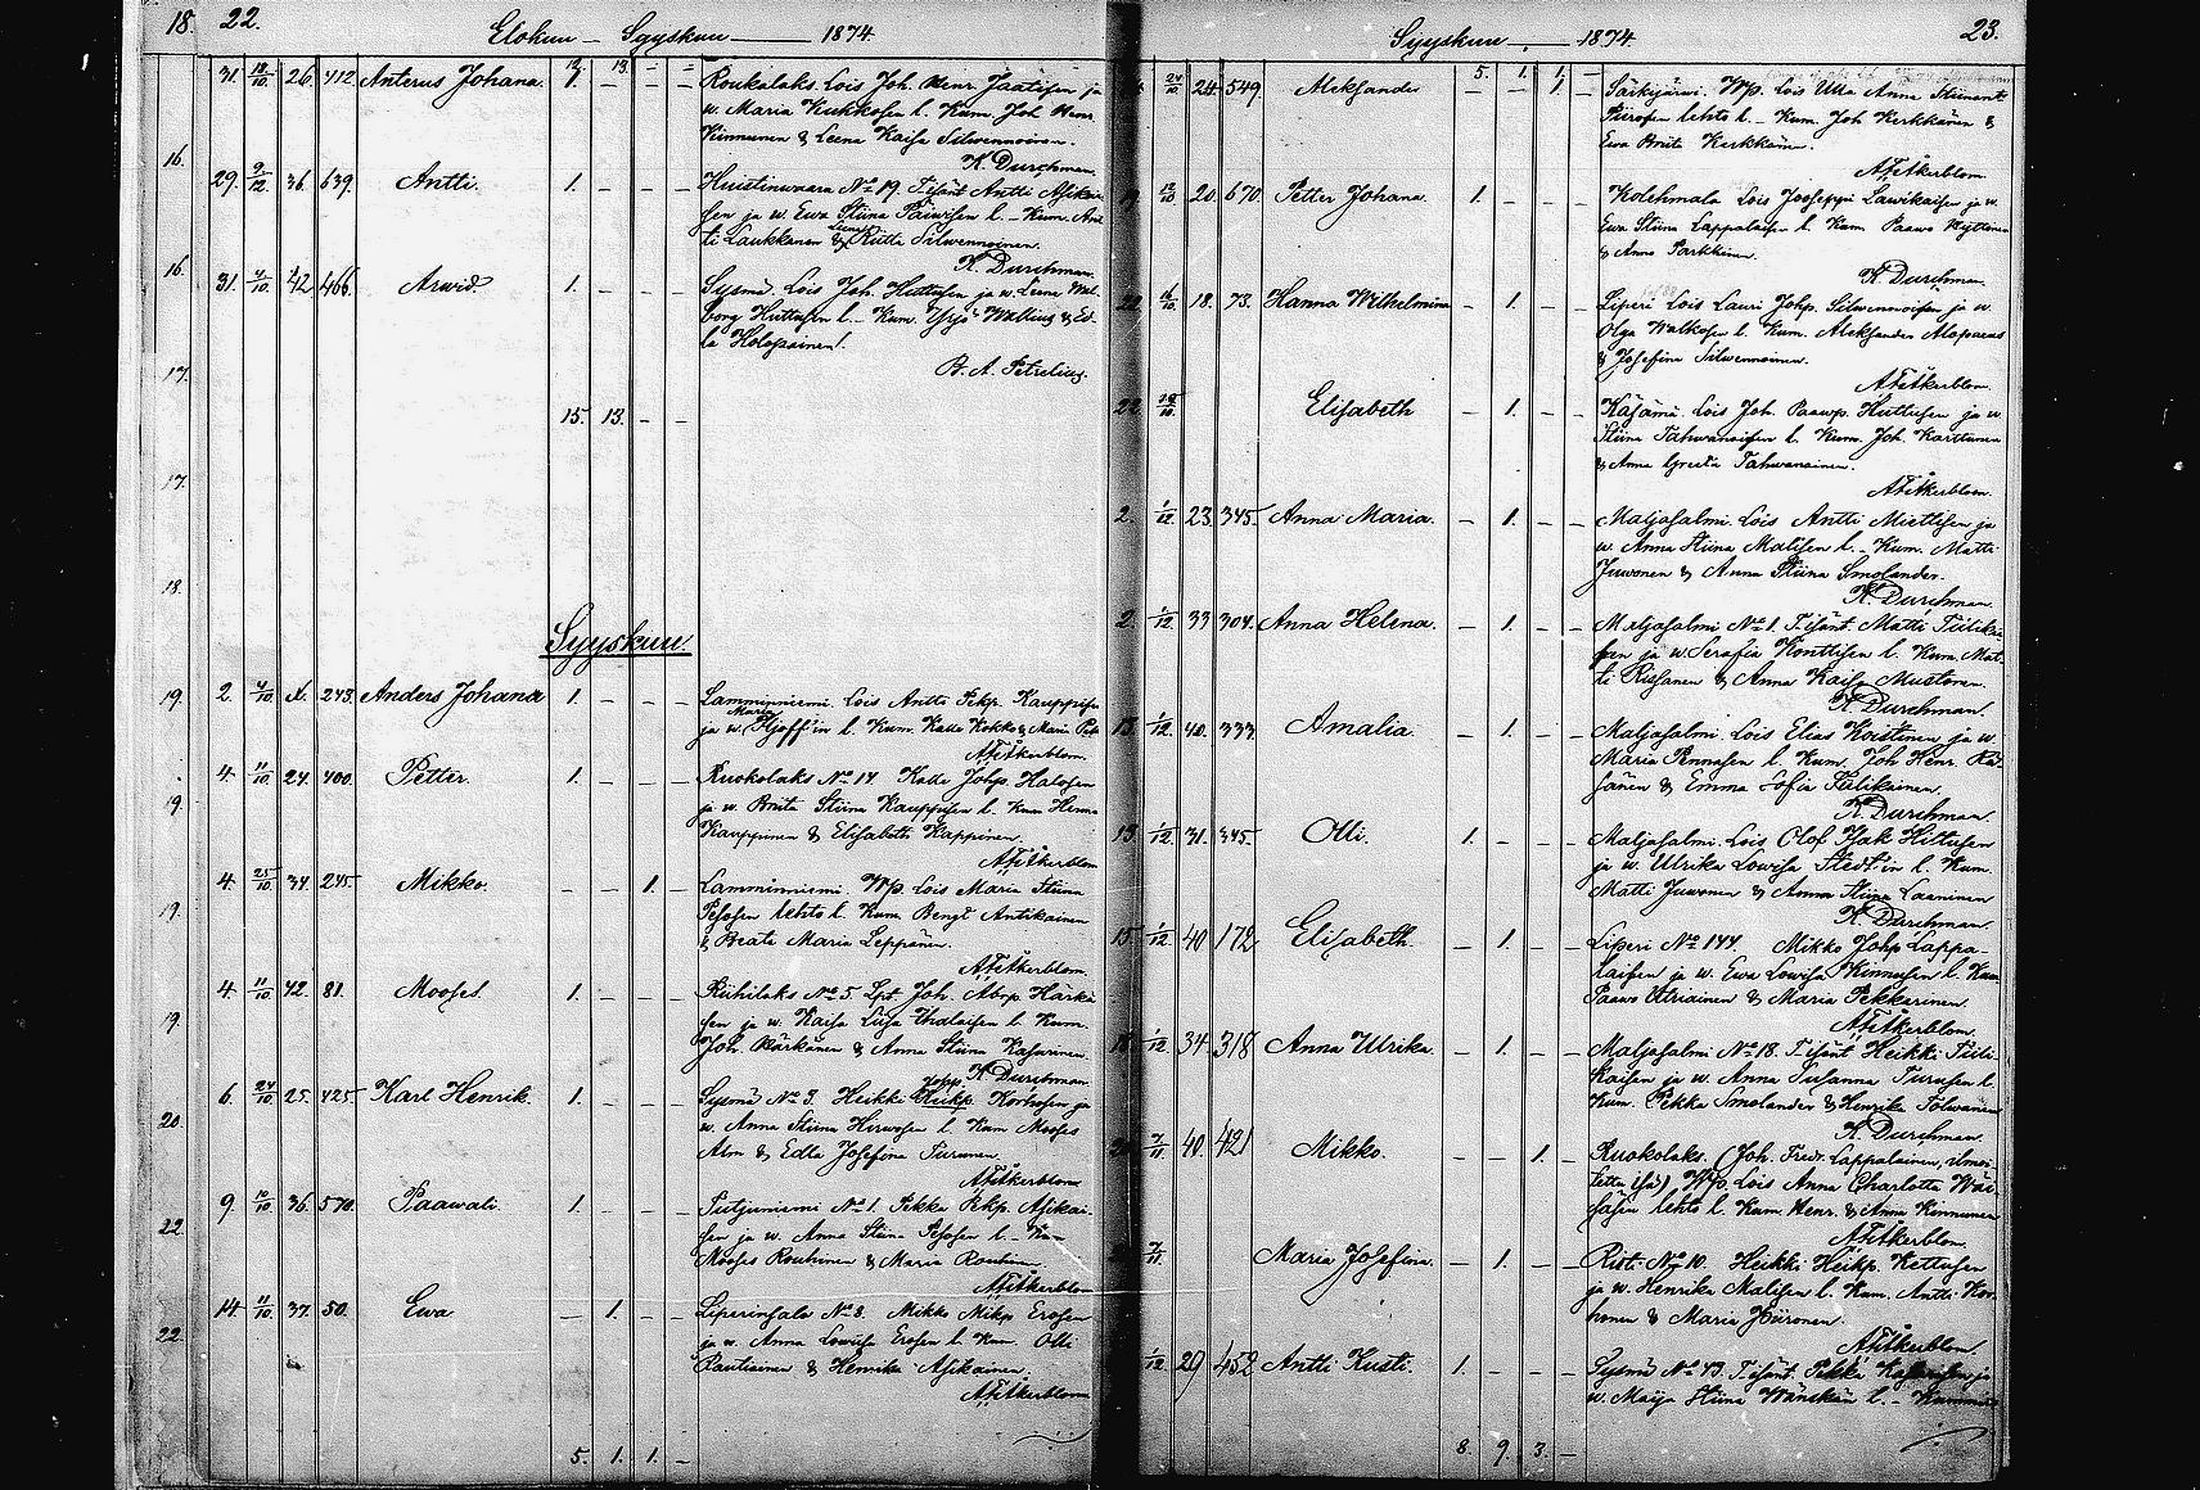 18. 22.
Elokuu — Syyskuu — 1874.
12. 13. - -
31. 18/10 26. 412. Anterus Johana. 1. - - - Roukalaks. Lois Joh. Henr. Jaatisen ja
w. Maria Kukkosen l. Kum. Joh. Henr.
Kinnunen & Leena Kaisa Silwennoinen.
K. Durchman.
16.
29. 9/12 36. 639. Antti. 1. - - - Huistinwaara No 19. T-isänt Antti Asikai-
sen ja w. Ewa Stiina Päiwisen l. - Kum. Ant-
ti Laukkanen & Leena Riitta Silwennoinen.
K. Durchman.
16.
31. 4/10 42. 466. Arwid. 1. - - - Sysmä. Lois Joh. Huttusen ja w. Leena Wal-
borg Huttusen l. - Kum. Yrjö Wallius & Ed-
la Holopainen.
17.
B. A. Petrelius.
15. 13. - -
17.
18.
Syyskuu.
19.
2. 4/10 243. Anders Johana 1. - - - Lamminniemi. Lois Antti Pekp. Kauppisen
ja w. Maria Hjoff'in l. Kum. Kalle Kokko & Maria
A F Åkerblom.
4. 11/10 24. 400. Petter. 1. - - - Ruokolaks No 14 Kalle Johp. Halosen
19.
ja w. Briita Stiina Kauppisen l. Kum Henna
Kauppinen & Elisabeth Kappinen.
A F Åkerblom
4. 25/10 34. 245. Mikko. - - 1. - Lamminniemi. Wp. Lois Maria Stiina
19.
Pesosen lehto l. Kum. Bengt Antikainen
& Beata Maria Leppänen.
A F Åkerblom.
4. 11/10 42. 81. Mooses. 1. - - - Riihilaks No 5. Lpt. Joh. Abrp. Härkä-
19.
sen ja w. Kaisa Liisa Ihalaisen l. Kum.
Joh. Härkänen & Anna Stiina Kasurinen.
K. Durchman.
6. 24/10 25. 425. Karl Henrik. 1. - - - Sysmä No 3. Heikki Johp. Heikp. Korhosen ja
20.
w. Anna Stiina Hirwosen l. Kum Mooses
Alm & Edla Josefina Turunen.
A F Åkerblom
9. 10/10 36. 570. Paawali. 1. - - - Tutjuniemi No 1. Pekka Pekp. Asikai-
22.
sen ja w. Anna Stiina Pesosen l. - Kum
Mooses Rouhinen & Maria Rouhinen.
A F Åkerblom
14. 11/10 37. 50. Ewa - 1. - - Liperinsalo No 8. Mikko Mikp. Erosen
22.
ja w. Anna Lowiisa Erosen l. Kum. Olli
Rautiainen & Henrika Asikainen.
A F Åkerblom
5. 1. 1. -
Syyskuu. — 1874. 23.
5. 1. 1. -
24/10 24. 549. Aleksander - - 1. - Särkijärwi. Wp. Lois Ulla Anna Stiinant.
Piirosen lehto l. - Kum. Joh. Kerkkänen &
Ewa Briita Kerkkänen.
A F Åkerblom.
12/10 20. 670. Petter Johana. 1. - - - Kolehmala Lois Jooseppi Läwikaisen ja w.
Ewa Stiina Lappalaisen l. Kum Paawo Kyttönen
& Anna Parkkinen.
K. Durchman.
18. 73. Hanna Wilhelmina - 1. - - Liperi Lois Lauri Johp. Silwennoisen ja w.
Olga Walkosen l. Kum. Aleksander Alopaeus
& Josefina Silwennoinen.
A F Åkerblom.
22. 18/10 Elisabeth - 1. - - Käsämä. Lois Joh. Paawp. Huttusen ja w.
Stiina Tahwanaisen l. Kum. Joh. Karttunen
& Anna Greeta Tahwanainen.
A F Åkerblom.
2. 1/12 23. 345. Anna Maria. - 1. - - Maljasalmi. Lois Antti Miettisen ja
w. Anna Stiina Malisen l. - Kum. Matti
Juwonen & Anna Stiina Smolander.
K. Durchman.
2. 1/12 33 304. Anna Helena. - 1. - - Maljasalmi No 1. T-isänt. Matti Tiilikai-
sen ja w. Serafia Konttisen l. Kum. Mat-
ti Riesanen & Anna Kaisa Mustonen.
K. Durchman.
13. 1/12 40. 333. Amalia. - 1. - - Maljasalmi. Lois Elias Koistinen ja w.
Maria Pennasen l. Kum. Joh Henr. Räi-
sänen & Emma Sofia Tiilikainen.
K. Durchman.
13. 1/12 31. 345. Olli. 1. - - - Maljasalmi. Lois Olof Isak Hiltusen
ja w. Ulrika Lowisa Stedt'in l. Kum.
Matti Juwonen & Anna Stiina Laaninen
K. Durchman.
15. 1/12 40 172. Elisabeth. - 1. - - Liperi No 144. Mikko Johp Lappa-
laisen ja w. Ewa Lowisa Kinnusen l. Kum.
Paawo Utriainen & Maria Pekkarinen.
A F Åkerblom.
1/12 34 318 Anna Ulrika. - 1. - - Maljasalmi No 18. T-isänt Heikki Tiili-
kaisen ja w. Anna Susanna Turusen l.
Kum. Pekka Smolander & Henrika Tolwanen
K. Durchman.
7/11 40. 421 Mikko. - - 1. - Ruokolaks. (Joh. Fredr. Lappalainen, ilmoi-
tettu isä) Wp. Lois Anna Charlotta Wäi-
säsen lehto l. Kum. Henr. & Anna Kinnunen
A F Åkerblom.
7/11 Maria Josefina. - 1. - - Risti No 10. Heikki Heikp. Kettusen
ja w. Henrika Malisen l. Kum. Antti Kor-
honen & Maria Hiironen.
A F Åkerblom.
1/12 29 452 Antti Kusti. 1. - - - Sysmä No 43. T-isänt. Pekka Kasurisen ja
w. Maija Stiina Wänskän l. - Kummit
8. 9. 3. -